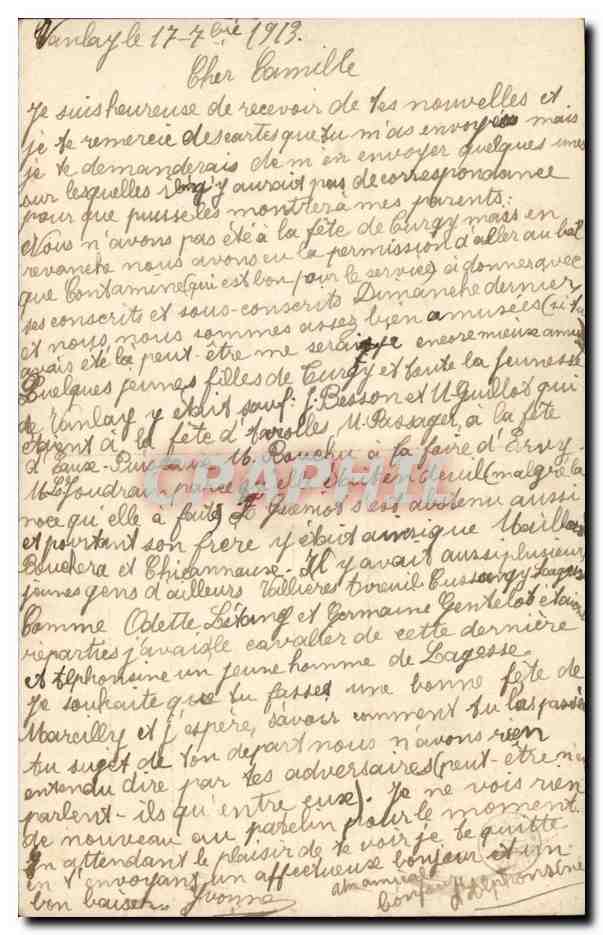 Vanlay le 17-7bre 1913.
Cher Camille
Je suis heureuse de recevoir de tes nouvelles et
je te remercie des cartes que tu m'as envoyées mais
je te demanderais de m'en envoyer quelques unes
sur lesquelles il n'y aurait pas de correspondance
pour que puisse les montrer à mes parents:
Nous n'avons pas été à la fête de Turgy mais en
revanche nous avons eu la permission d'aller au bal
que Contamine (qui est bon pour le service) à donner avec
ses conscrits et sous-conscrits Dimanche dernier
et nous nous sommes assez bien amusées (si tu
avais été là peut-être me serais-je encore mieux amusée
Quelques jeunes filles de Turgy et toute la jeunesse
de Vanlay y était sauf: J. Besson et M Guillot qui
étaient à la fête d'Avrolles M. Passager, à la fête
d'Eaux-Puiseaux M. Bouchu à la foire d'Ervy
Melle Joudrain parce qu'elle
(malgré la
noce qu'elle à faite)
s'est abstenu aussi
et pourtant son frère y était ainsi que Maillard
Bouchera et Chicanneaux. Il y avait aussi plusieurs
jeunes gens d'ailleurs Vallières Avreuil Cussangy Lagesse
Comme Odette Létang et Germaine Gentelot étaient
reparties j'avais le cavalier de cette dernière
et Alphonsine un jeune homme de Lagesse.
Je souhaite que tu fasses une bonne fête de
Marcilly et j'espère, savoir comment tu l'as passée
Au sujet de ton départ nous n'avons rien
entendu dire par tes adversaires (peut-être n'en
parlent-ils qu'entre eux). Je ne vois rien
de nouveau au patelin pour le moment.
En attendant le plaisir de te voir je te quitte
en t'envoyant un affectueux bonjour et un
bon baiser. Yvonne
bonjour d'Alphonsine
CPAPHIL